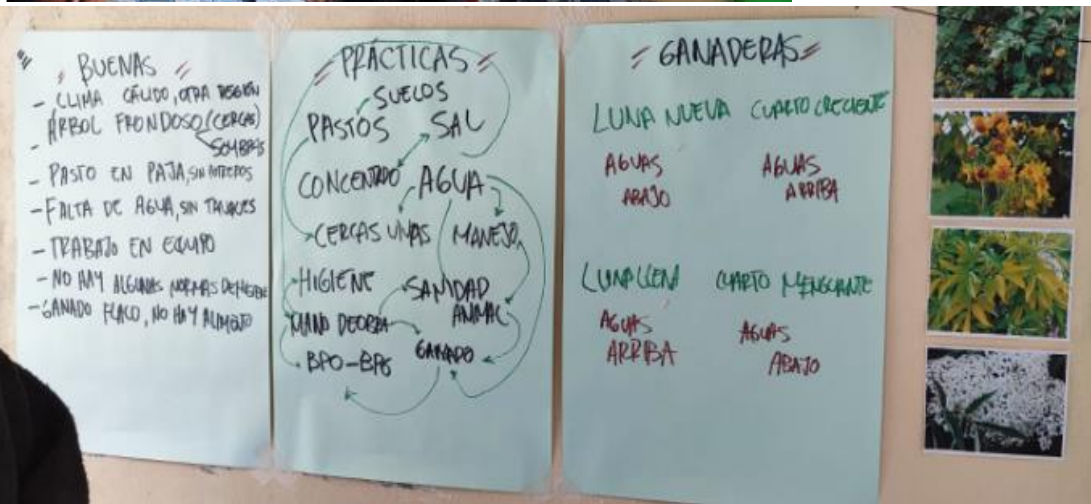 BUENAS
- CLIMA CÁLIDO, OTRA REGIÓN
- ÁRBOL FRONDOSO (CERCAS)
SOMBRAS
- PASTO EN PAJA, SIN POTREROS
- FALTA DE AGUA, SIN TANQUES
- TRABAJO EN EQUIPO
- NO HAY ALGUNAS NORMAS DE HIGIENE
- GANADO FLACO, NO HAY ALIMENTO
PRÁCTICAS
SUELOS
PASTOS SAL
CONCENTRADO AGUA
CERCAS VIVAS MANEJO
HIGIENE SANIDAD
ANIMAL
MANO DE OBRA
BPO-BPG GANADO
GANADERAS
LUNA NUEVA CUARTO CRECIENTE
AGUAS AGUAS
ABAJO ARRIBA
LUNA LLENA CUARTO MENGUANTE
AGUAS AGUAS
ARRIBA ABAJO